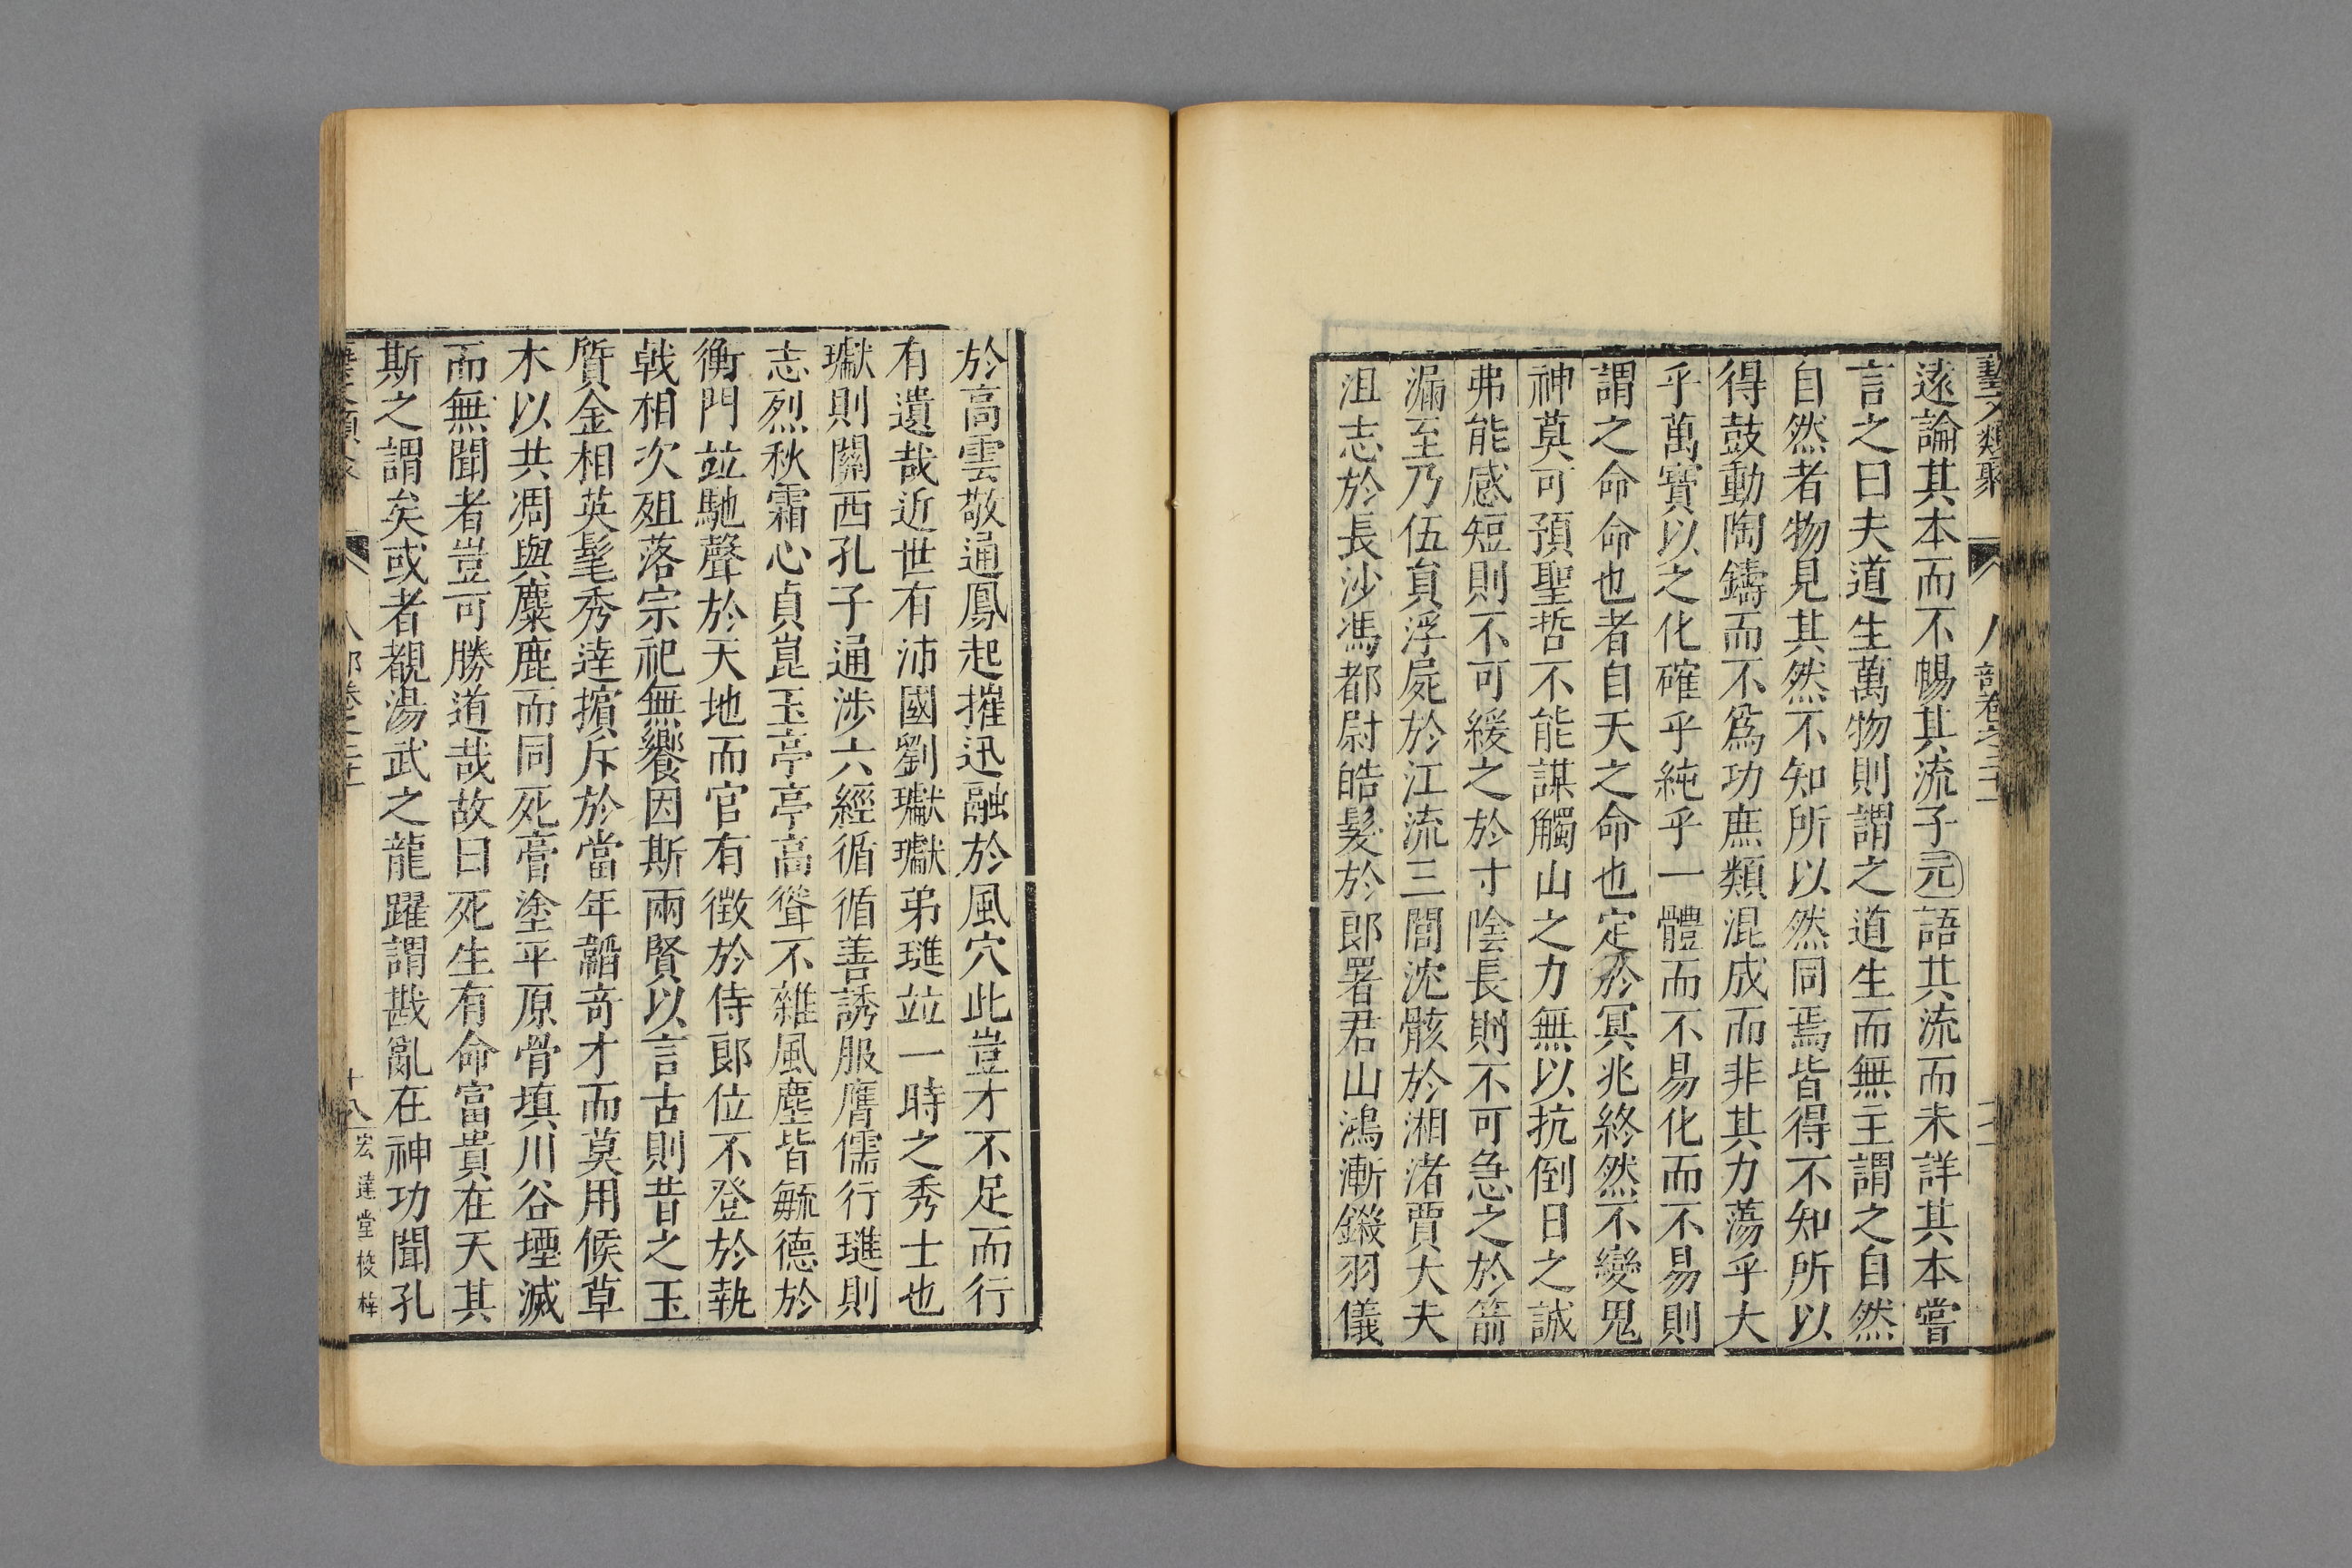 藝文類聚 八部卷之二十一
遠論其本而不暢其流子元語其流而未詳其本嘗
言之曰夫道生萬物則謂之道生而無主謂之自然
自然者物見其然不知所以然同焉皆得不知所以
得鼓動陶鑄而不為功庶類混成而非其力蕩乎大
乎萬寶以之化確乎純乎一體而不易化而不易則
謂之命命也者自天之命也定於冥兆終然不變鬼
神莫可預聖哲不能謀觸山之力無以抗倒日之誠
弗能感短則不可緩之於寸陰長則不可急之於箭
漏至乃伍員浮屍於江流三閭沈骸於湘渚賈大夫
沮志於長沙馮都尉皓髮於郎署君山鴻漸鎩羽儀
於高雲敬通鳳起摧迅融於風穴此豈才不足而行
有遺哉近世有沛國劉瓛瓛弟璡竝一時之秀士也
瓛則關西孔子通涉六經循循善誘服膺儒行璡則
志烈秋霜心貞崑玉亭亭高聳不雜風塵皆毓德於
衡門竝馳聲於天地而官有徵於侍郎位不登於執
戟相次殂落宗祀無饗因斯兩賢以言古則昔之玉
質金相英髦秀達擯斥於當年韜奇才而莫用候草
木以共凋與麋鹿而同死膏塗平原骨填川谷堙滅
而無聞者豈可勝道哉故曰死生有命富貴在天其
斯之謂矣或者覩湯武之龍躍謂戡亂在神功聞孔
十八 宏達堂校梓